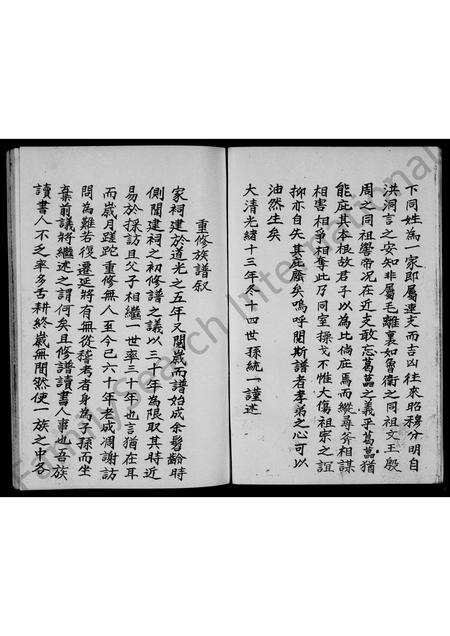 下同姓為一家即屬連支而吉凶往來昭穆分明自
洪洞言之安知非屬毛離裏如魯衛之同祖文王殷
周之同祖嚳帝况在近支敢忘葛藟之義乎葛藟猶
能庇其本根故君子以為比倘庇焉而縱尋斧相謀
相害相爭相奪此乃同室操戈不惟大傷祖宗之誼
抑亦自失其庇廕矣嗚呼閱斯譜者孝弟之心可以
油然生矣
大清光緒十三年冬十四世孫統一謹述
重修族譜叙
家祠建於道光之五年又閱歲而譜始成余髫齡時
側聞建祠之初修譜之議以三十年為限取其時近
易於採訪且父子相繼一世率三十年也言猶在耳
而歲月蹉跎重修無人至今已六十年老成凋謝訪
問為難若復遷延將有無從稽考者身為子孫而坐
棄前議將繼述之謂何矣且修譜讀書人事也吾族
讀書人不乏率多舌耕終歲無閒然使一族之中各
FamilySearch International